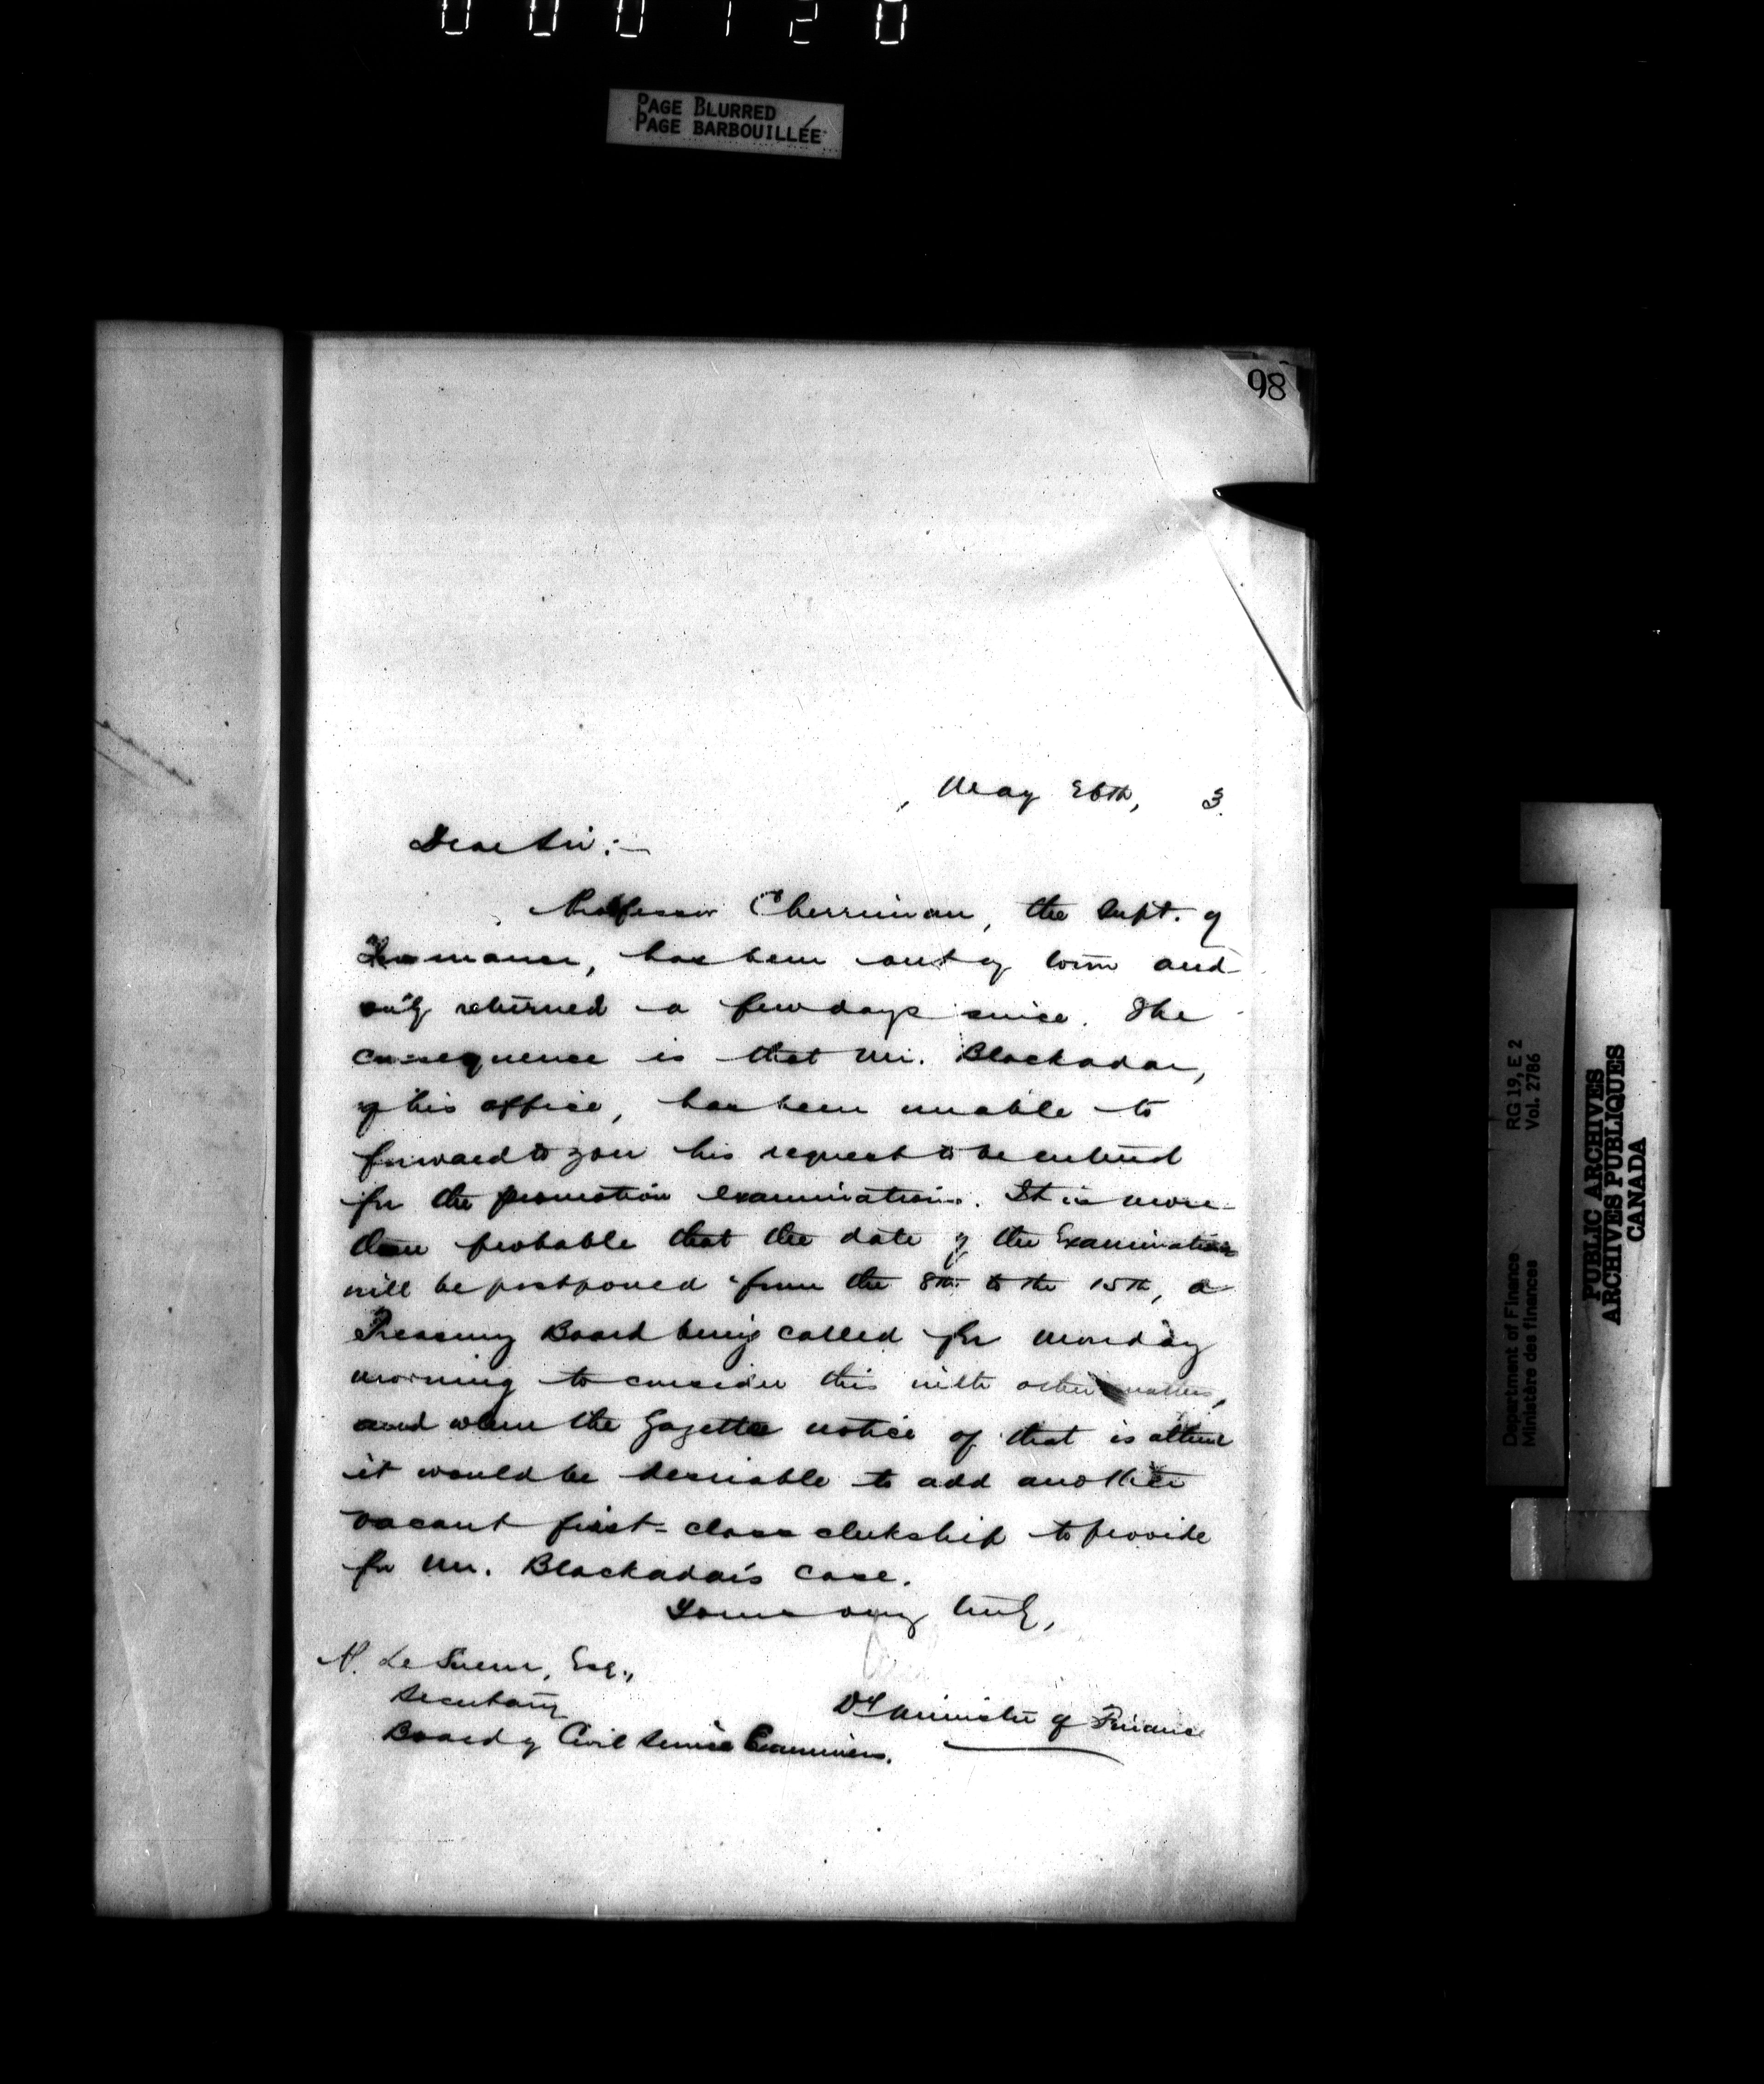 000120
PAGE BLURRED
PAGE BARBOUILLÉE
98
, May 26th, 3
Dear Sir:—
Professor Cherriman, the Supt. of
Insurance, has been out of town and
only returned a few days since. The
consequence is that Mr. Blackadar,
of his office, has been unable to
forward to you his request to be entered
for the promotion examinations. It is more
than probable that the date of the Examination
will be postponed from the 8th to the 15th, a
Treasury Board being called for Monday
morning to consider this with other matters,
and when the Gazette notice of that is
it would be desirable to add another
vacant first-class clerkship to provide
for Mr. Blackadar's case.
Yours very truly,
P. Le Sueur, Esq.,
Secretary
Board of Civil Service Examiners.
Dy Minister of Finance
Department of Finance RG 19, E 2
Ministère des finances Vol. 2786
PUBLIC ARCHIVES
ARCHIVES PUBLIQUES
CANADA